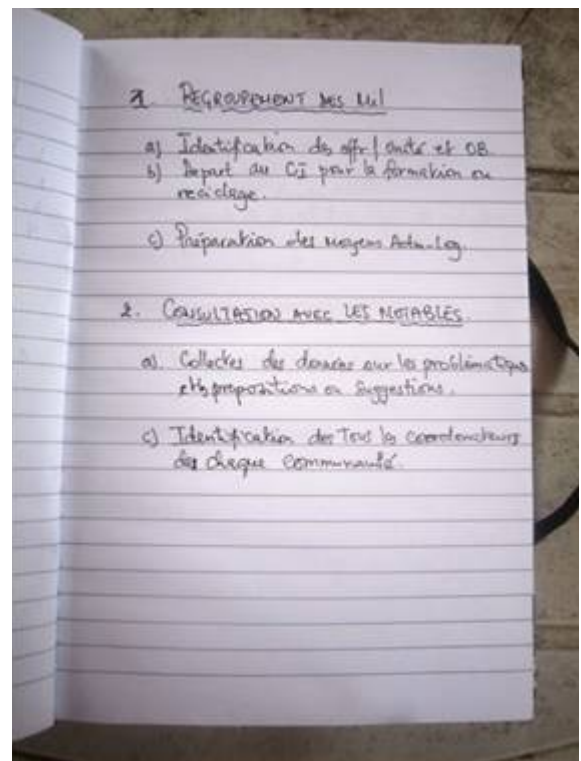 1. REGROUPEMENT DES Mil
a) Identification des offr/unité et OB
b) Depart au CI pour la formation ou
recidage.
c) Préparation des moyens Adm-Log.
2. CONSULTATION AVEC LES NOTABLES.
a). Collectes des données sur les problématiques
et propositions ou suggestions.
c) Identification des Tous les coordonateurs
des chaque communauté.